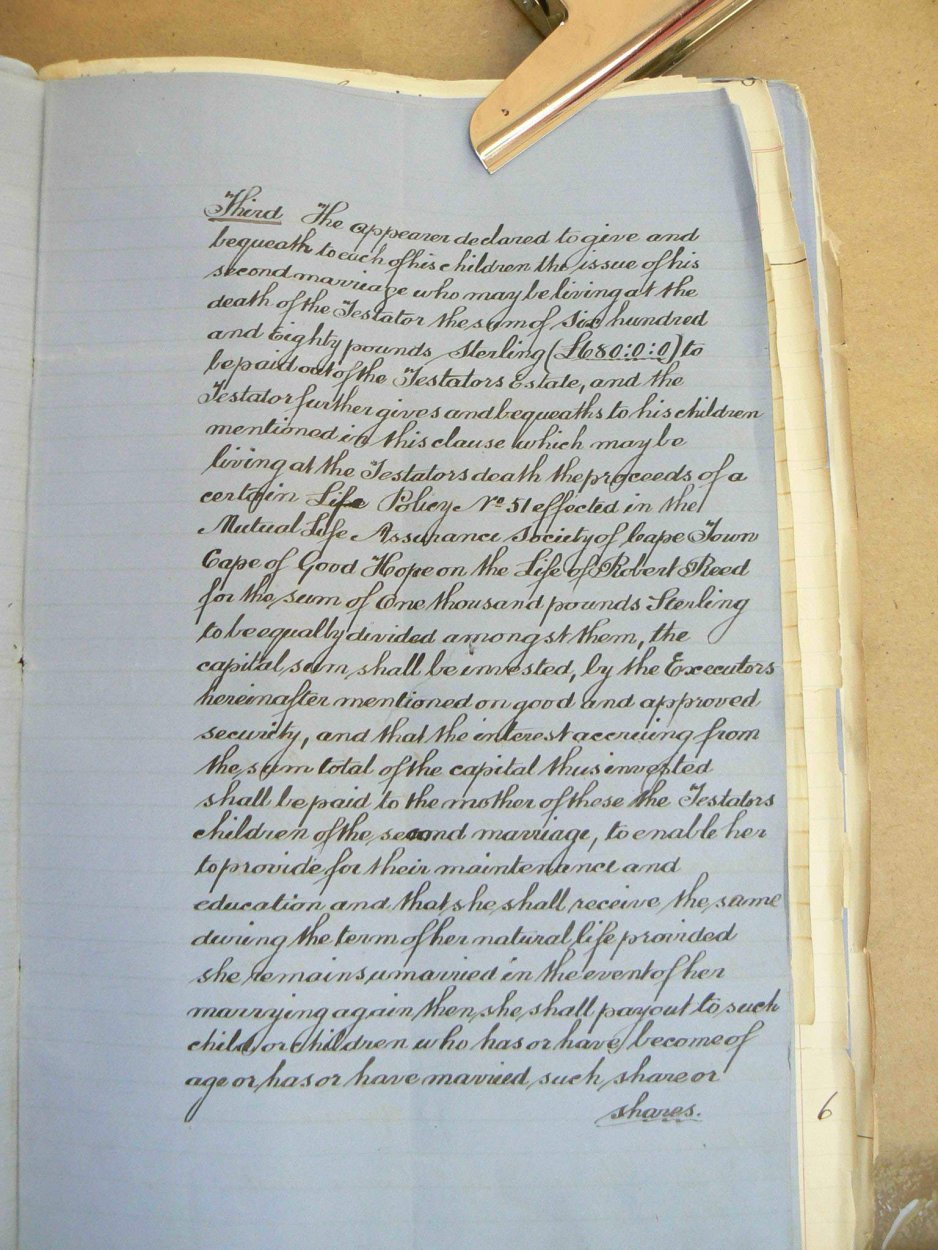 Third The appearer declared to give and
bequeath to each of his children the issue of his
second marriage who may be living at the
death of the Testator the sum of Six hundred
and Eighty pounds Sterling (£680:0:0) to
be paid out of the Testators Estate, and the
Testator further gives and bequeaths to his children
mentioned in this clause which may be
living at the Testators death the proceeds of a
certain Life Policy No 51 effected in the
Mutual Life Assurance Society of Cape Town
Cape of Good Hope on the Life of Robert Reed
for the sum of One thousand pounds Sterling
to be equally divided amongst them, the
capital sum shall be invested, by the Executors
hereinafter mentioned on good and approved
security, and that the interest accruing from
the sum total of the capital thus invested
shall be paid to the mother of these the Testators
children of the second marriage, to enable her
to provide for their maintenance and
education and that she shall receive the same
during the term of her natural life provided
she remains unmarried in the event of her
marrying again then she shall payout to such
child or children who has or have become of
age or has or have married such share or
shares.
6